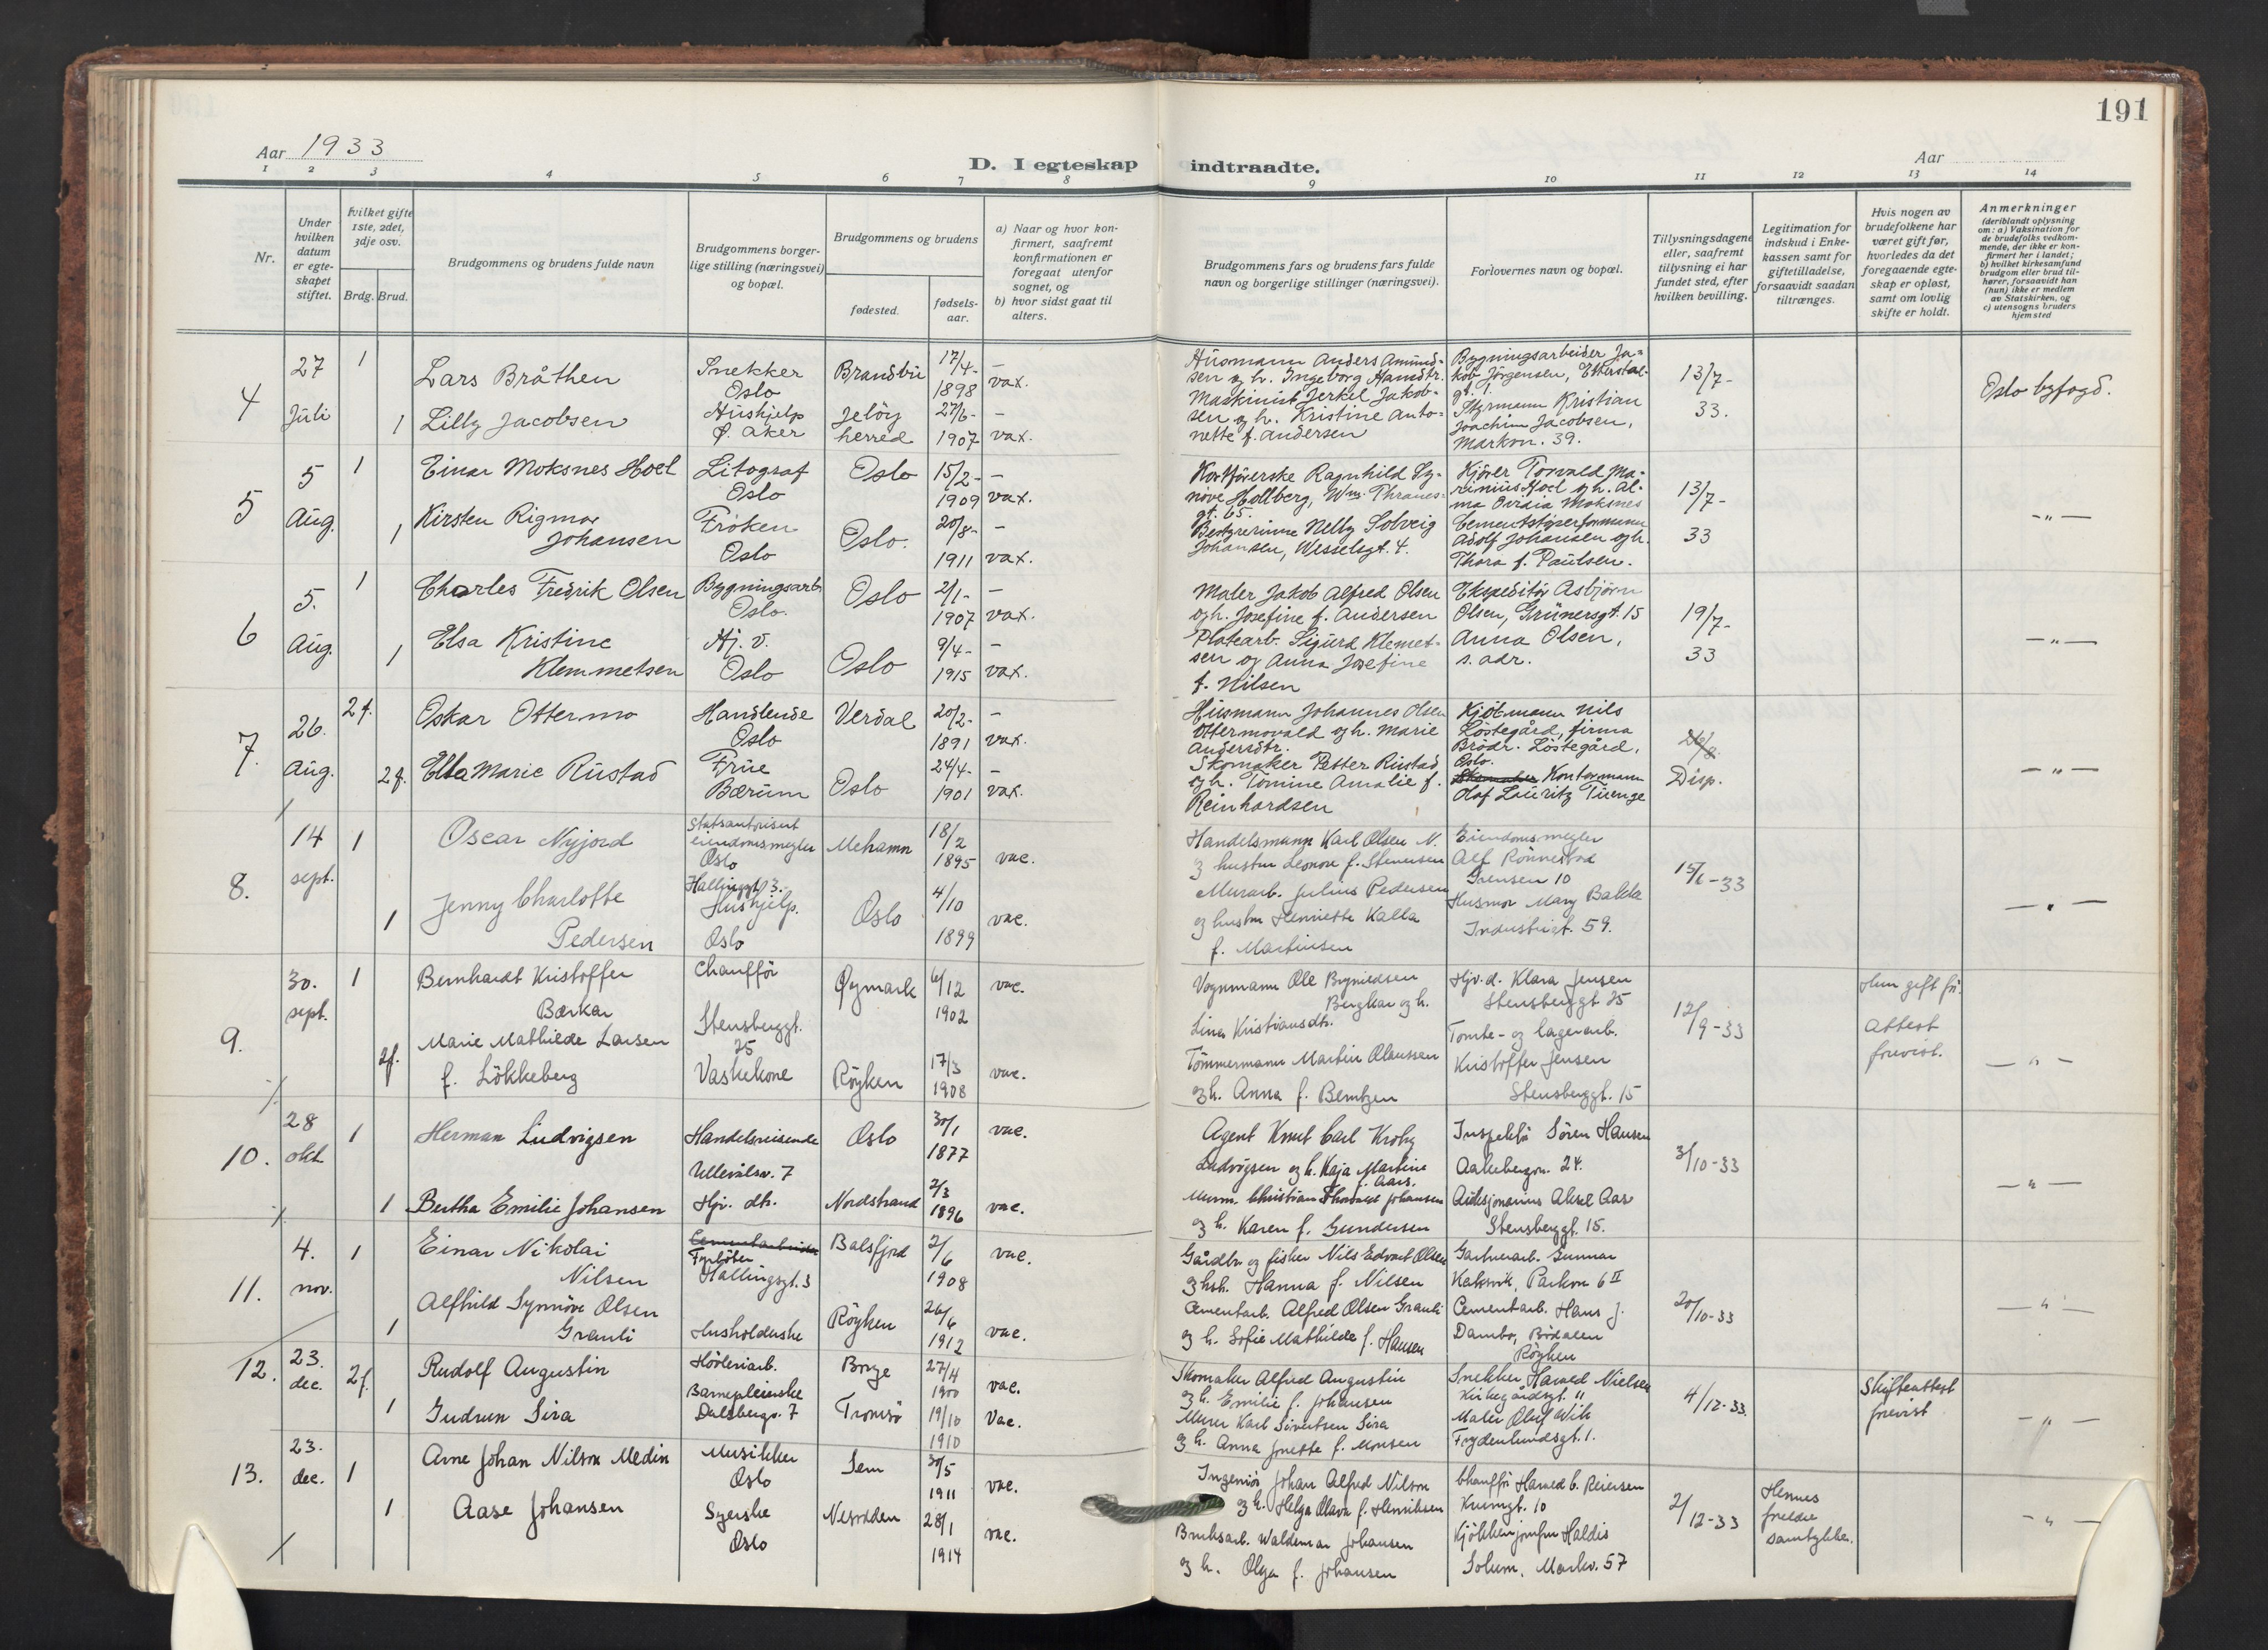 191
Aar 1933
D. I egteskap indtraadte.
Aar
1 2 3 4 5 6 7 8 9 10 11 12 13 14
Nr.
Under hvilken datum er egteskapet stiftet.
hvilket gifte 1ste, 2det, 3dje osv.
Brdg. Brud.
Brudgommens og brudens fulde navn
Brudgommens borgerlige stilling (næringsvei) og bopæl.
Brudgommens og brudens
fødested.
fødselsaar.
a) Naar og hvor konfirmert, saafremt konfirmationen er foregaat utenfor sognet, og
b) hvor sidst gaat til alters.
Brudgommens fars og brudens fars fulde navn og borgerlige stillinger (næringsvei).
Forlovernes navn og bopæl.
Tillysningsdagene eller, saafremt tillysning ei har fundet sted, efter hvilken bevilling.
Legitimation for indskud i Enkekassen samt for giftetilladelse, forsaavidt saadan tiltrænges.
Hvis nogen av brudefolkene har været gift før, hvorledes da det foregaaende egteskap er opløst, samt om lovlig skifte er holdt.
Anmerkninger
(deriblandt oplysning om: a) Vaksination for de brudefolks vedkommende, der ikke er konfirmert her i landet; b) hvilket kirkesamfund brudgom eller brud tilhører, forsaavidt han (hun) ikke er medlem av Statskirken, og c) utensogns bruders hjemsted
4
27 Juli
1
Lars Bråthen
Snekker
Oslo
Brandbu
17/4-
1898
–
vax.
1
Lilly Jacobsen
Hushjelp
Ø. Aker
Jeløy
herred
27/6-
1907
–
vax.
Husmann Anders Amund=
sen og h. Ingeborg Hansdtr.
Maskinist Jerkel Jakob-
sen og h. Kristine Anto=
nette f. Andersen
Bygningsarbeider Ja=
kob Jørgensen, Etterstad-
gt. 1.
Styrmann Kristian
Joachim Jacobsen,
Markvn. 39.
13/7-
33.
Oslo byfogd.
5
5 Aug.
1
Einar Moksnes Hoel
Litograf
Oslo
Oslo
15/2-
1909
–
vax.
1
Kirsten Rigmor
Johansen
Frøken
Oslo
Oslo.
20/8-
1911
–
vax.
Kortførerske Ragnhild Sy-
nøve Hollberg, Wm. Thranes=
gt. 65.
Bestyrerinne Nelly Solveig
Johansen, Wesselsgt. 4.
Kjører Torvald Ma-
rinius Hoel og h. Al-
ma Ovidia Moksnes
Cementstøperformann
Adolf Johansen og h.
Thora f. Paulsen.
13/7-
33
– " –
6
5. Aug.
1
Charles Fredrik Olsen
Bygningsarb.
Oslo.
Oslo
2/1-
1907
–
vax.
1
Elsa Kristine
Klemmetsen
Hj. v.
Oslo
Oslo
9/4-
1915
–
vax.
Maler Jakob Alfred Olsen
og h. Josefine f. Andersen
Platearb. Sigurd Klemet-
sen og Anna Josefine
f. Nilsen
Ekspeditør Asbjørn
Olsen, Grünersgt. 15
Anna Olsen,
s. adr.
19/7-
33
– " –
7.
26. Aug.
2 f.
Oskar Ottermo
Handlende
Oslo
Verdal
20/2-
1891
–
vax.
2 f.
Ella Marie Rustad
Frue
Bærum
Oslo
24/4-
1901
–
vax.
Husmann Johannes Olsen
Ottermovald og h. Marie
Andersdtr.
Skomaker Petter Rustad
og h. Tomine Amalie f.
Reinhardsen
Kjøtmann Nils
Løstegård, firma
Brødr. Løstegård,
Oslo.
Kontormann
Olaf Lauritz Tuenge
Disp.
– " –
8.
14 sept.
1
Oscar Nyjord
Statsautorisert
eiendomsmegler
Oslo
Hallingsgt. 3.
Mehamn
18/2
1895
vac.
1
Jenny Charlotte
Pedersen
Hushjelp.
Oslo
Oslo
4/10
1899
vac.
Handelsmann Karl Olsen N.
og hustru Leonore f. Stenersen
Murarb. Julius Pedersen
og hustru Henriette Kalla
f. Martinsen
Eiendomsmegler
Alf Rønnestad
Grensen 10
Husmor Mary Bakke
Industrigt. 59.
15/6-33
– " –
9.
30. sept.
1
Bernhardt Kristoffer
Bærkar
Chauffør
Stensberggt.
25
Øymark
6/12
1902
vac.
2f.
Marie Mathilde Larsen
f. Løkkeberg
Vaskekone
Røyken
17/3
1908
vac.
Vognmann Ole Brynildsen
Bergkar og h.
Lina Kristiansdtr.
Tømmermann Martin Olaussen
og h. Anna f. Berntzen
Hjv. d. Klara Jensen
Stensberggt. 25
Tomte- og lagerarb.
Kristoffer Jensen
Stensberggt. 15
12/9-33
Hun gift før.
Attest
forevist.
– " –
10.
28 okt.
1
Herman Ludvigsen
Handelsreisende
Ullevålsv. 7
Oslo
30/1
1877
vac.
1
Bertha Emilie Johansen
Hjv. dtr.
Nordstrand
2/3
1896
vac.
Agent Knut Carl Krohg
Ludvigsen og h. Kaja Martine
f. Aars.
Murm. Christian Thorvald Johansen
og h. Karen f. Gundersen
Inspektør Søren Hansen
Aakebergvn. 24.
Auksjonarius Aksel Aas
Stensberggt. 15.
3/10-33
– " –
11.
4. nov.
1
Einar Nikolai
Nilsen
Cementarbeider
Fyrbøter
Hallingsgt. 3
Balsfjord
2/6
1908
vac.
1
Alfhild Synnøve Olsen
Granli
Husholderske
Røyken
26/6
1912
vac.
Gårdbr. og fisker Nils Edvart Olsen
og hsh. Hanna f. Nilsen
Cementarb. Alfred Olsen Granli
og h. Sofie Mathilde f. Hansen
Gartnerarb. Gunnar
Kaksvik, Parkvn 6 II
Cementarb. Hans J.
Dambo, Bødalen
Røyken
20/10-33
" –
12.
23. dec.
2f.
Rudolf Augustin
Høvleriarb.
Borge
27/4
1900
vac.
1
Gudrun Sira
Barnepleierske
Dalsbergv. 7
Tromsø
19/10
1910
Vac.
Skomaker Alfred Augustin
og h. Emilie f. Johansen
Murer Karl Sivertsen Sira
og h. Anna Jonette f. Monsen
Snekker Harald Nielsen
Kirkegårdsgt. 11
Maler Oluf Wik
Frydenlundsgt. 1.
4/12-33.
Skifteattest
forevist
– " –
13.
23. dec.
1
Arne Johan Nilson Medin
Musikker
Oslo
Sem
30/5
1911
vac.
1
Aase Johansen
Syerske
Oslo
Nesodden
28/1
1914
vac.
Ingeniør Johan Alfred Nilson
og h. Helga Olava f. Henriksen
Bruksarb. Waldemar Johansen
og h. Olga f. Johansen
Chauffør Harald C. Reiersen
Krumgt. 10
Kjøkkenjomfru Haldis
Solum, Markv. 57
2/12-33
Hennes
foreldre
samtykke.
– " –